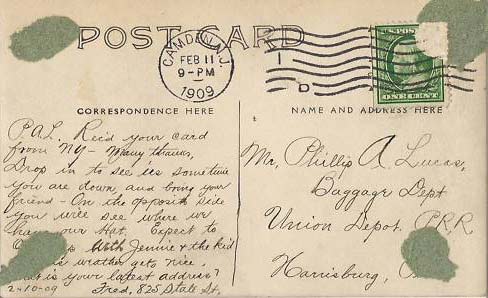 POST CARD
CAMDEN, N.J.
FEB 11
9-PM
1909
1
D
U.S. POS
ONE CENT
CORRESPONDENCE HERE
NAME AND ADDRESS HERE
P.A.L. Rec'd your card
from NY - Many thanks,
Drop in to see us sometime
you are down, and bring your
friend - On the opposite side
you will see where we
hang our Hat. Expect to
with Jennie & the kid
weather gets nice.
What is your latest address?
2-10-09 Fred, 825 State St.
Mr. Phillip A. Lucas,
Baggage Dept
Union Depot. P.R.R.
Harrisburg,